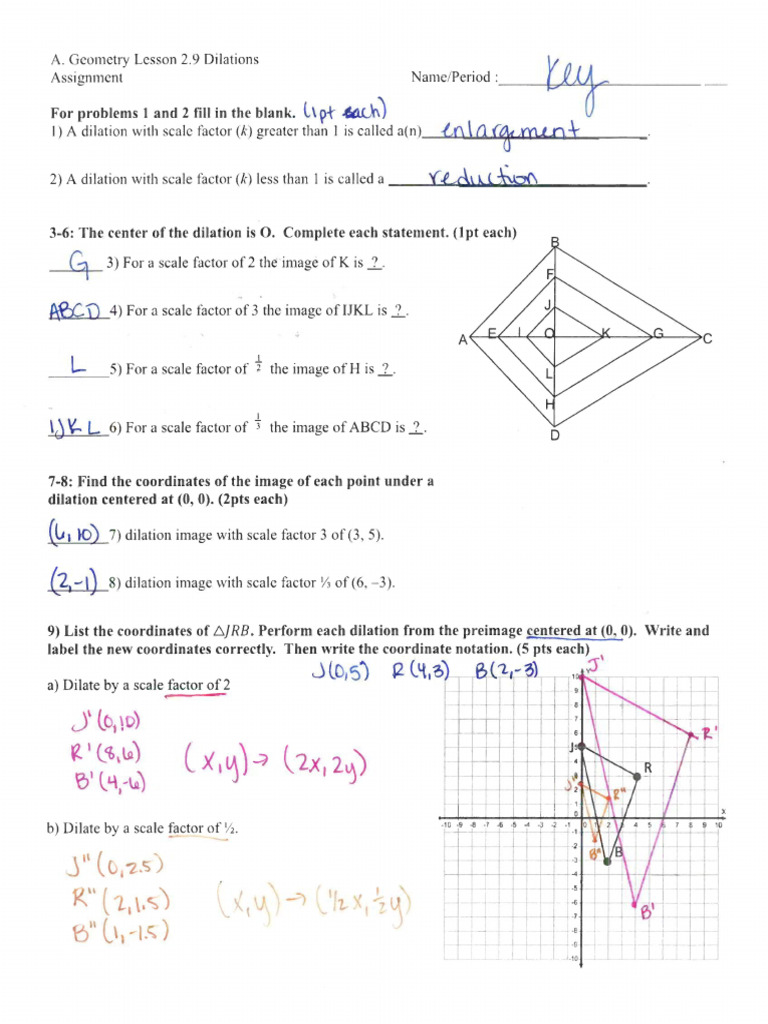 A. Geometry Lesson 2.9 Dilations
Assignment Name/Period : Key
For problems 1 and 2 fill in the blank. (1pt each)
1) A dilation with scale factor (k) greater than 1 is called a(n) enlargement.
2) A dilation with scale factor (k) less than 1 is called a reduction.
3-6: The center of the dilation is O. Complete each statement. (1pt each)
G 3) For a scale factor of 2 the image of K is ?.
ABCD 4) For a scale factor of 3 the image of IJKL is ?.
L 5) For a scale factor of 1/2 the image of H is ?.
IJKL 6) For a scale factor of 1/3 the image of ABCD is ?.
B
F
J
A E I O K G C
L
H
D
7-8: Find the coordinates of the image of each point under a
dilation centered at (0, 0). (2pts each)
(6,10) 7) dilation image with scale factor 3 of (3, 5).
(2,-1) 8) dilation image with scale factor ⅓ of (6, –3).
9) List the coordinates of △JRB. Perform each dilation from the preimage centered at (0, 0). Write and
label the new coordinates correctly. Then write the coordinate notation. (5 pts each)
J(0,5) R(4,3) B(2,-3)
a) Dilate by a scale factor of 2
J'(0,10)
R'(8,6)
B'(4,-6)
(x,y)→(2x,2y)
b) Dilate by a scale factor of ½.
J"(0,2.5)
R"(2,1.5)
B"(1,-1.5)
(x,y)→(½x,½y)
J'
R'
J
R
J"
R"
B"
B
B'
x
-10 -9 -8 -7 -6 -5 -4 -3 -2 -1 0 1 2 3 4 5 6 7 8 9 10